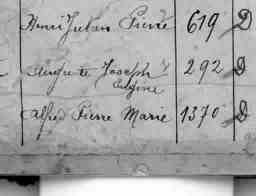 Henri Julien Pierre 619 D
Auguste Joseph 292 D
Alfred Pierre Marie 1370 D